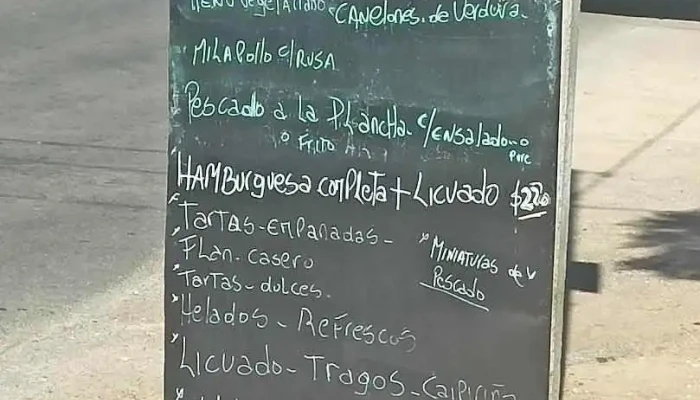 MENU vegetariano CANELONES de Verdura.
MILA Pollo c/RUSA
Pescado a La PLancha c/ENSALADA o Pure
o FRITO
HAMBurguesa comPLeta + Licuado $220
Tartas - emPanadas -
Flan. casero
* MINIATURAS de
Pescado
Tartas - dulces.
Helados - Refrescos
Licuado - Tragos - CaiPiriña